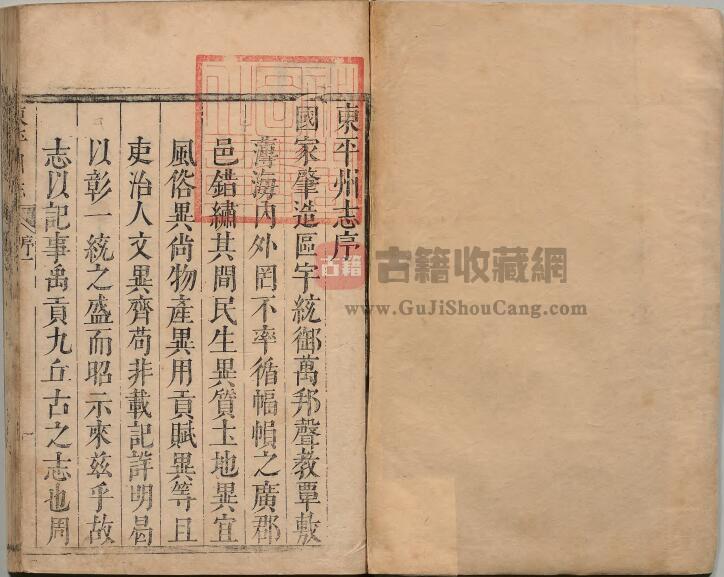 東平州志序
國家肇造區宇統御萬邦聲教覃敷
薄海內外罔不率循幅幀之廣郡
邑錯繡其間民生異質土地異宜
風俗異尚物產異用貢賦異等且
吏治人文異齊苟非載記詳明曷
以彰一統之盛而昭示來兹乎故
志以記事禹貢九丘古之志也周
序
一
古籍
古籍收藏網
www.GuJiShouCang.com